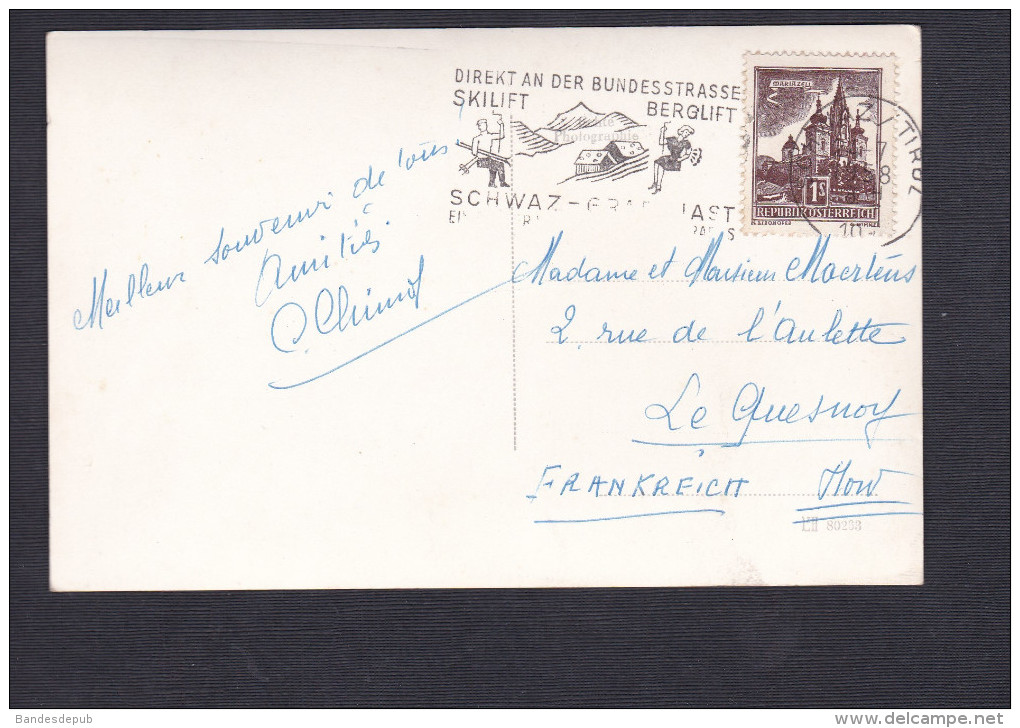 DIREKT AN DER BUNDESSTRASSE
SKILIFT BERGLIFT
Photographie
SCHWAZ -
MARIAZELL
1S
REPUBLIK ÖSTERREICH
Meilleur souvenir de tous
Amitiés
Madame et Monsieur Maertens
2, rue de l'Aulette
Le Quesnoy
FRANKREICH Nord
80293
Bandesdepub
delcampe.net